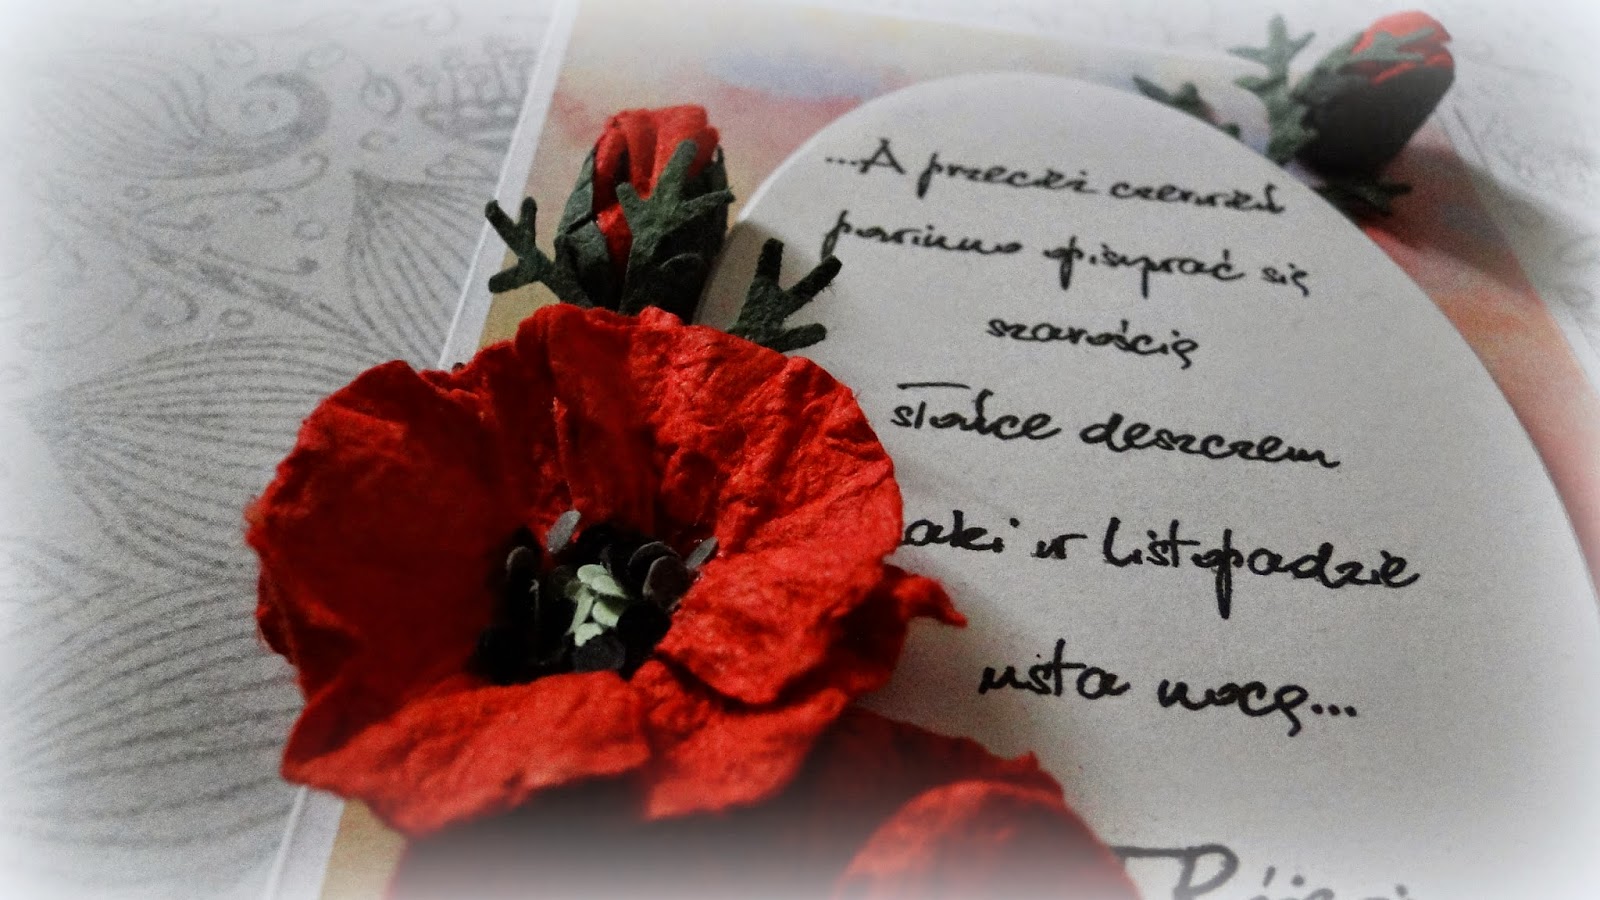 ...A przecież czerwień
powinno opisywać się
szarością
słońce deszczem
maki w listopadzie
usta nocą...